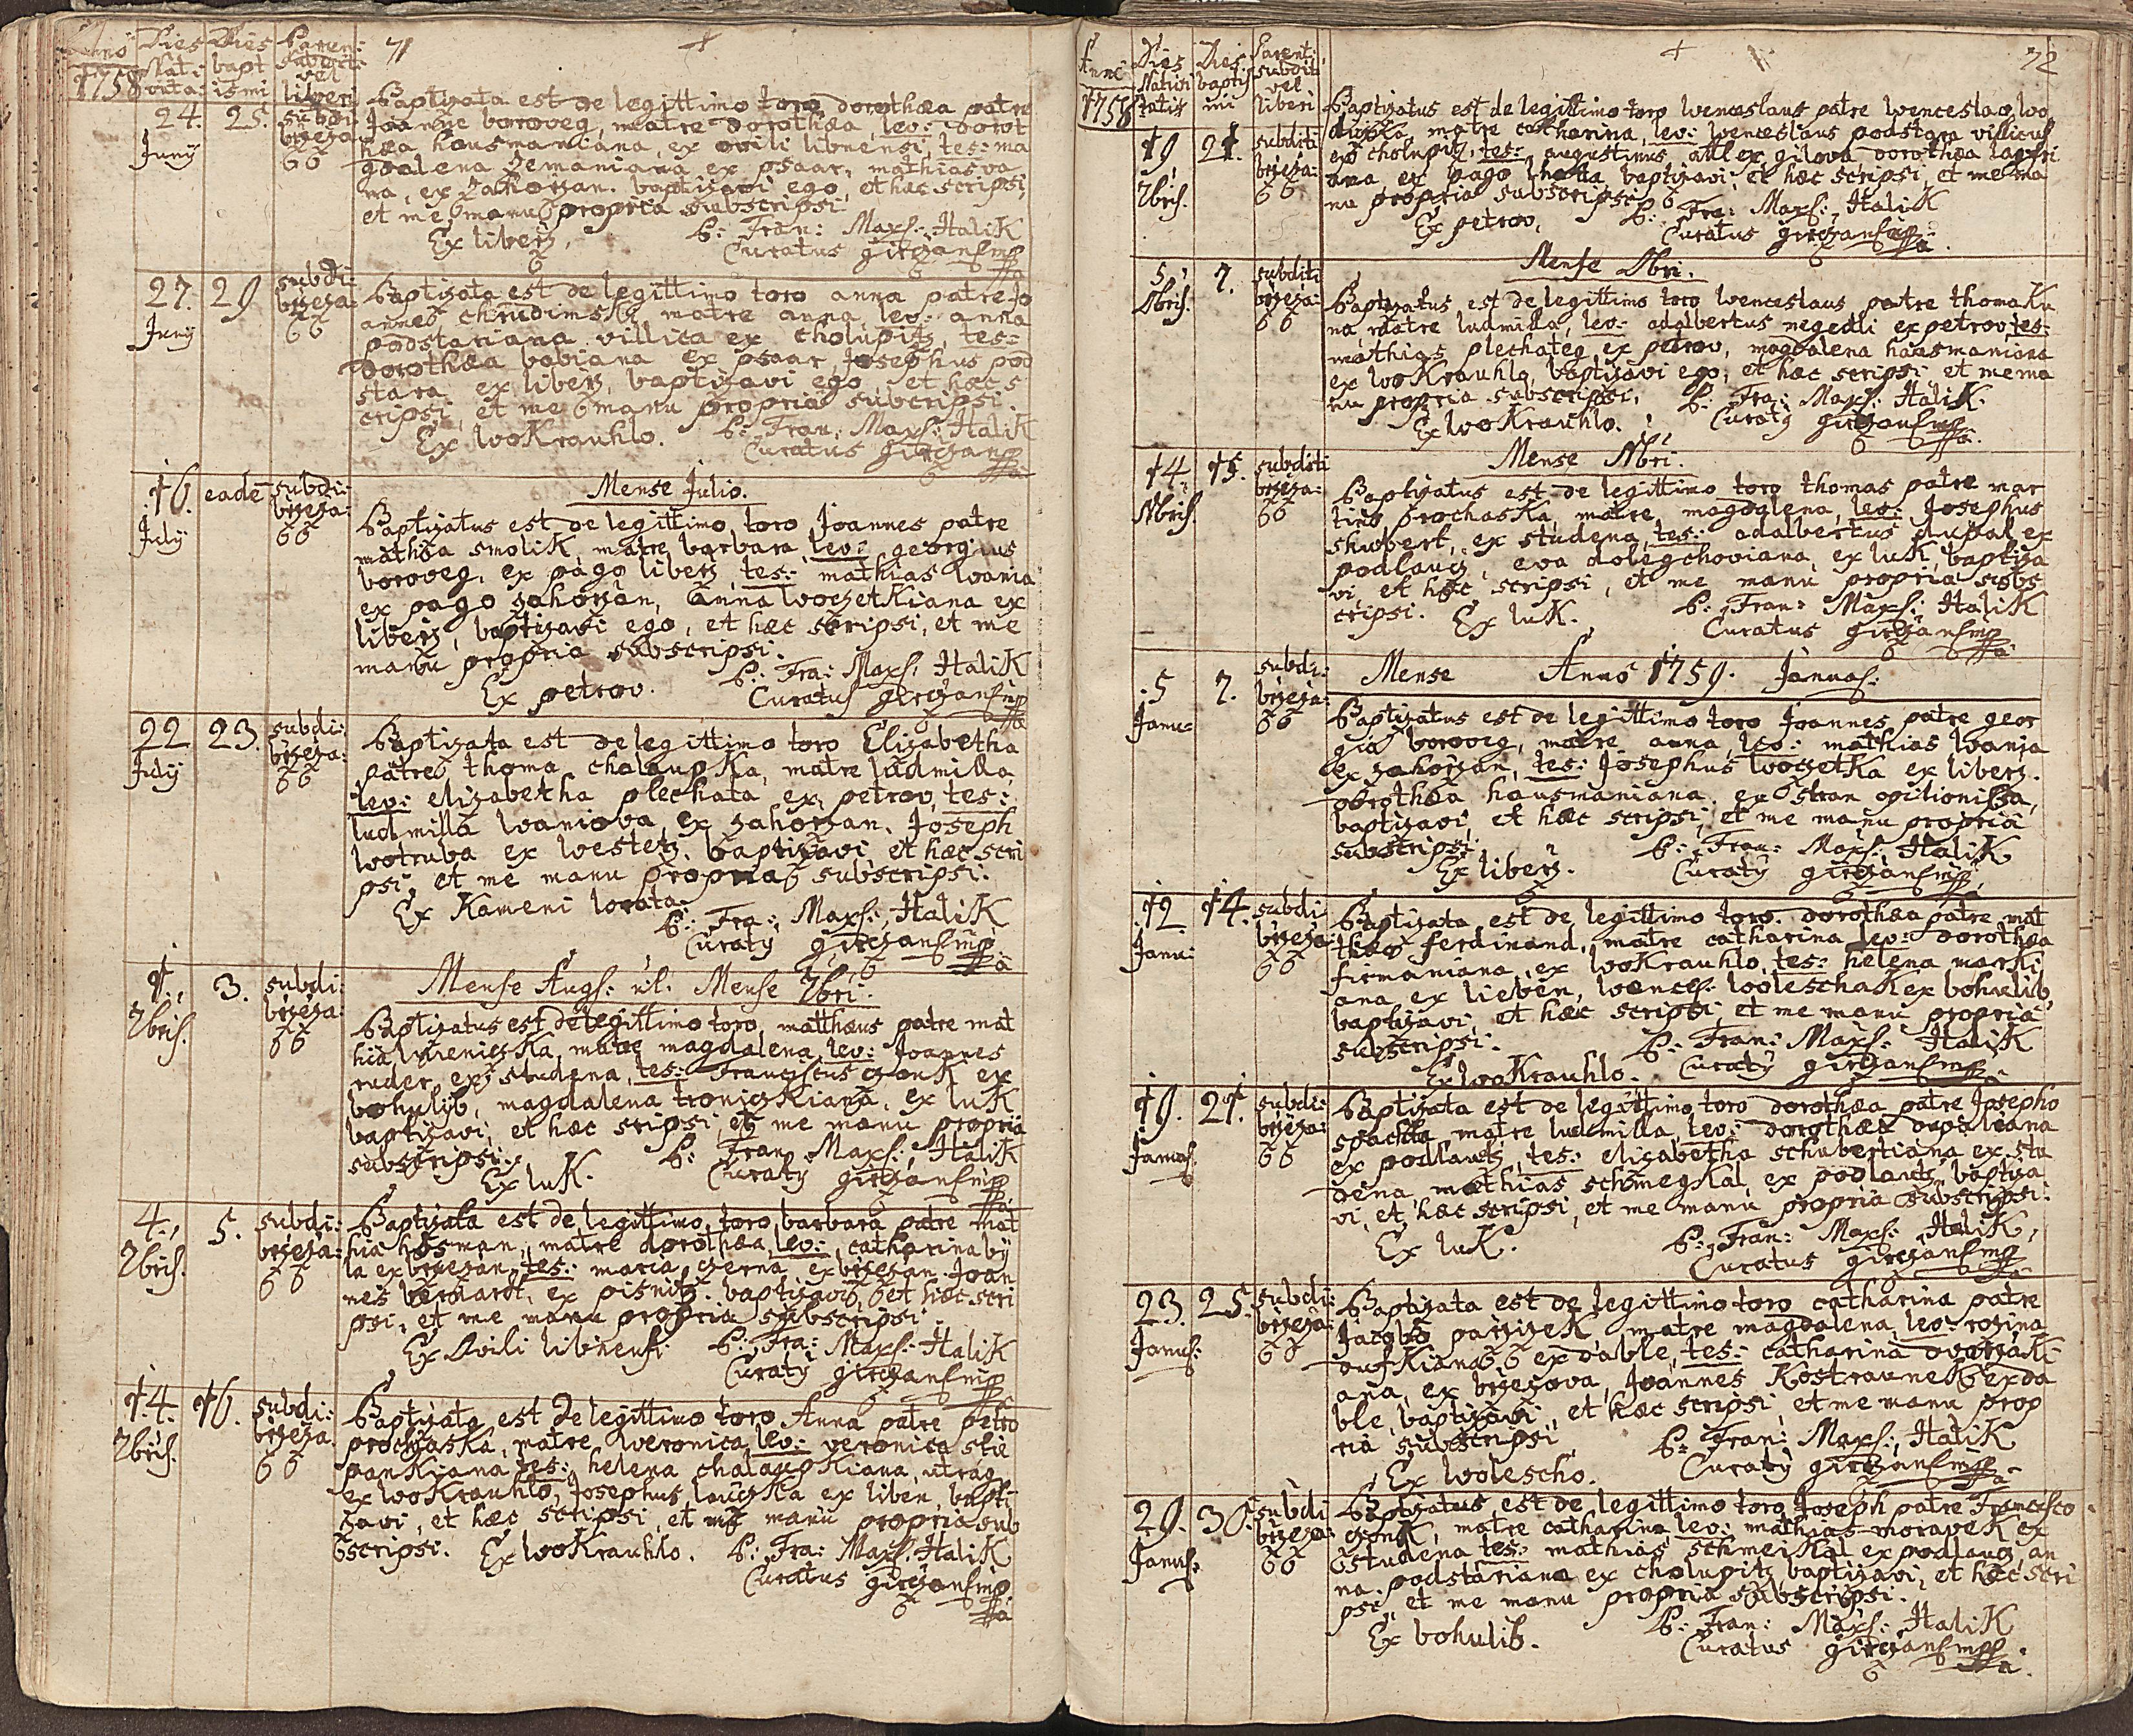 Anno Dies Dies Paren: 71
1758 Nati vita: bapt ismi subditi vel liberi
24. Juny 25. subdi: brzeza:
Baptizata est de legittimo toro dorothæa patre
Joanne boroveg, matre dorothæa, lev: dorot
hæa hausmaniana, ex ovili libnensi, tes: ma
gdalena zemaniana ex psaar, mathias va
nia, ex zahorzan. baptizavi ego, et hæc scripsi,
et me manu propria subscripsi
Ex liberz, P: Fran: Maxs: Halik
Curatus girczansmp
27. Juny 29 subdi: brzeza:
Baptizata est de legittimo toro anna patre Jo
annes chrudimsky matre anna lev: anna
podstariana villica ex cholupitz, tes:
Dorothæa babiana ex psaar, Josephus pod
stara ex liberz, baptizavi ego, et hæc s
cripsi, et me manu propria subcripsi.
Ex woKrauhlo. P: Fran: Maxs: Halik
Curatus girczansmp
Mense Julio.
16. July eadē subdi: brzeza:
Baptizatus est de legittimo toro Joannes patre
mathæa smoliK, matre barbara, lev: georgius
boroveg, ex pago liberz, tes: mathias wania
ex pago zahorzan, Anna woczetKiana ex
liberz, baptizavi ego, et hæc scripsi, et me
manu propria subscripsi.
Ex petrov. P: Fra: Maxs: Halik
Curatus girczansmp
22 July 23. subdi: brzeza:
Baptizata est de legittimo toro Elizabetha
patre thoma chalaupKa, matre ludmilla
lev: elizabetha plechata ex petrov, tes:
ludmilla waniova ex zahorzan. Joseph
wotruba ex westetz. baptizavi et hæc scri
psi, et me manu propria subscripsi.
Ex Kameni wrata.
P: Fra: Maxs: Halik
Curaty girczansmp
Mense Augs: ut. Mense 7bri.
1. 7bris. 3. subdi: brzeza:
Baptizatus est de legittimo toro, matthæus patre mat
hia, matre magdalena, lev: Joannes
ruder, ex studena, tes: Franciscus czonK ex
bohulib, magdalena troniczKiana, ex luK
baptizavi, et hæc scripsi, et me manu propria
subscripsi. P: Fran: Maxs: Halik
Ex luK. Curaty girczansmp
4. 7bris. 5. subdi: brzeza:
Baptizata est de legittimo toro, barbara patre mat
hia hosman, matre dorothæa, lev: catharina by
la ex brzezan, tes: maria czerna ex brzezan. Joan
nes bernardt, ex pisnitz. baptizavi, et hæc scri
psi, et me manu propria subscripsi.
Ex Ovili libnensi. P: Fra: Maxs: Halik
Curaty girczansmp
14. 7bris. 16. subdi: brzeza.
Baptizata est De legittimo toro Anna patre petro
prochaska, matre veronica, lev: veronica stie
panKiana tes: helena chalaupKiana, utraq
ex woKrauhlo, Josephus lauczKa ex liben, bapti
zavi, et hæc scripsi, et me manu propria sub
scripsi. Ex woKrauhlo. P: Fra: Maxs: Halik
Curatus girczansmp
Anno Dies Dies Parent: 72
1758 Nativitatis baptismi subditi vel liberi
19. 7bris. 21. subditi brzeza:
Baptizatus est de legittimo toro wenceslaus patre wenceslao wo
, matre catharina, lev: wenceslaus podstara villicus
ex cholupitz, tes: augustinus ex gilova dorothæa
ana ex pago lhotta baptizavi, et hæc scripsi, et me ma
nu propria subscripsi
P: Fra: Maxs: Halik
Ex petrov, Curatus girczansmp
Mense 8bri.
5. 8bris. 7. subditi brzeza:
Baptizatus est de legittimo toro wenceslaus patre thoma Ku
na, matre ludmilla, lev: adalbertus negedli ex petrov, tes:
mathias plechateg ex petrov, magdalena hausmaniana
ex woKrauhlo, baptizavi ego, et hæc scripsi et me ma
nu propria subscripsi. P: Fra: Maxs: Halik
Ex woKrauhlo. Curaty girczansmp
Mense Nbri.
14. Nbris. 15. subditi brzeza:
Baptizatus est de legittimo toro thomas patre mar
tino prochasKa, matre magdalena, lev: Josephus
shubert, ex studena, tes: adalbertus dupal ex
podlautz, eva dolegchoviana, ex luK, baptiza
vi, et hæc scripsi, et me manu propria subs
cripsi. P: Fran: Maxs: Halik
Ex luK. Curatus girczansmp
Mense Anno 1759. Januas:
5 Janu: 7. subdi: brzeza:
Baptizatus est de legittimo toro Joannes patre geor
gia boroveg, matre anna, lev: mathias wania
ex zahorzan, tes: Josephus woczetKa ex liberz.
dorothæa hausmaniana ex stran opilionissa,
baptizavi, et hæc scripsi, et me manu propria
subscripsi. P: Fran: Maxs: Halik
Ex liberz. Curaty girczansmp
12 Janu: 14. subdi brzeza:
Baptizata est de legittimo toro. dorothæa patre mat
thæo ferdinand, matre catharina lev: dorothæa
firmaniana, ex woKrauhlo, tes: helena marki
ana ex lieben, wences: woleschaK ex bohulib,
baptizavi, et hæc scripsi, et me manu propria
subscripsi. P: Fran: Maxs: Halik
Ex woKrauhlo. Curaty girczansmp
19. Januas. 21. subdi: brzeza:
Baptizata est de legittimo toro dorothæa patre Josepho
spachta matre ludmilla, lev: dorothæa dupaleana
ex podlautz, tes: elizabetha schubertiana, ex stu
dena, mathias schmegKal ex podlautz, baptiza
vi, et hæc scripsi, et me manu propria subscripsi.
Ex luK. P: Fran: Maxs: Halik,
Curatus girczansmp
23. Janus: 25. subdi: brzeza:
Baptizata est de legittimo toro catharina patre
Jacobo parzizeK matre magdalena, lev: rozina
dufKiana ex dable, tes: catharina dvorzaKi
ana, ex brzezova, Joannes KostrauneK ex da
ble, baptizavi, et hæc scripsi, et me manu prop
ria subscripsi, P: Fran: Maxs: Halik
Ex wolescho. Curaty girczansmp
29. Janus: 30. subdi brzeza:
Baptizatus est de legittimo toro Joseph patre Francisco
czonK, matre catharina, lev: mathias moraveK ex
studena tes: mathias schmeiKal ex podlautz, an
na podstariana ex cholupitz baptizavi, et hæc scri
psi, et me manu propria subscripsi.
P: Fran: Maxs: Halik
Ex bohulib. Curatus girczansmp